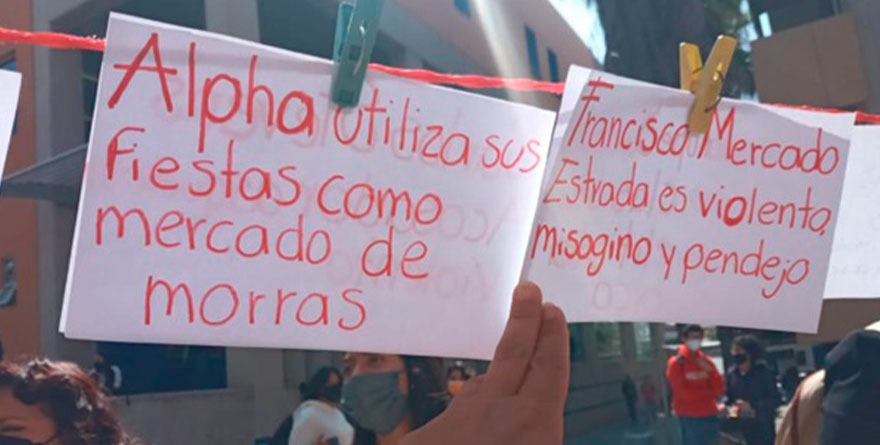 Alpha utiliza sus
fiestas como
mercado de
morras
Francisco Mercado
Estrada es violento,
misogino y pendejo